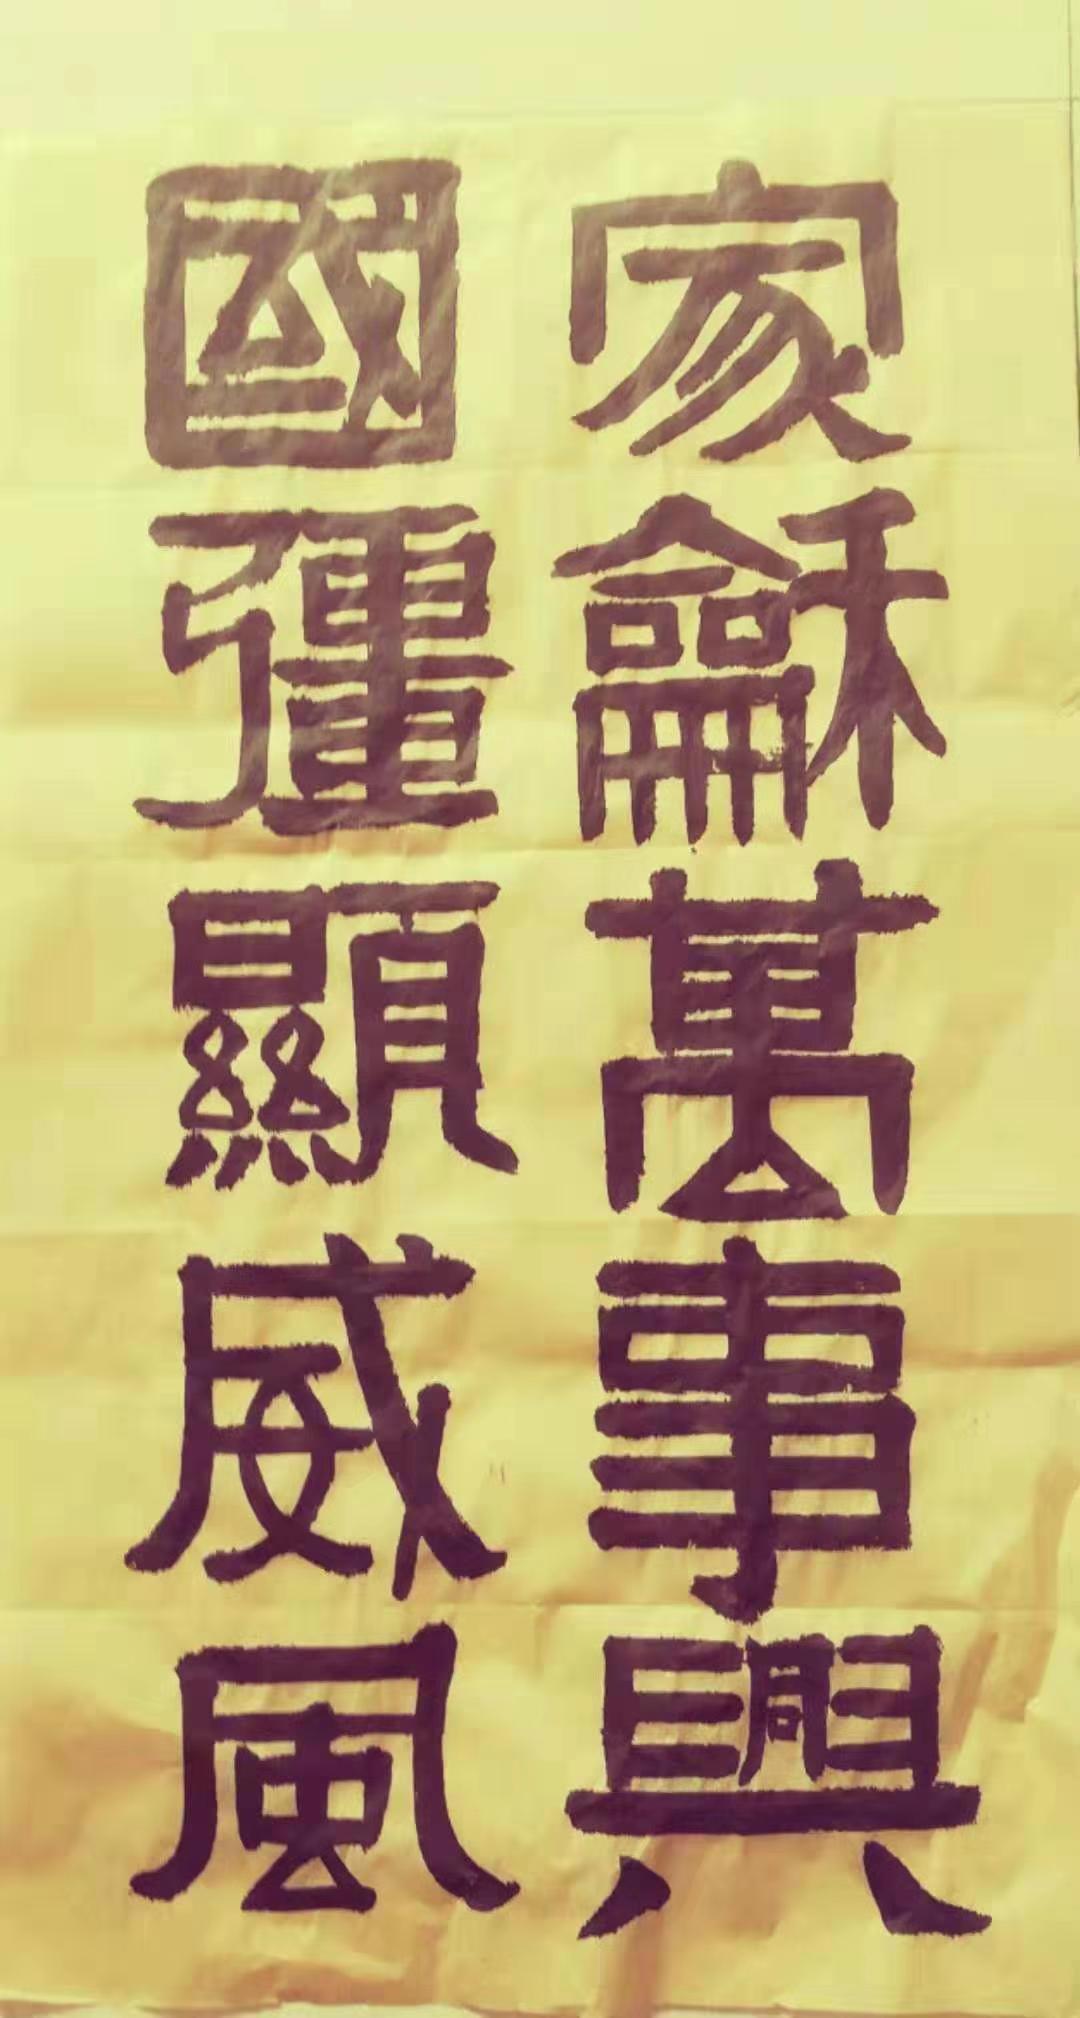 家龢萬事興
國彊顯威風